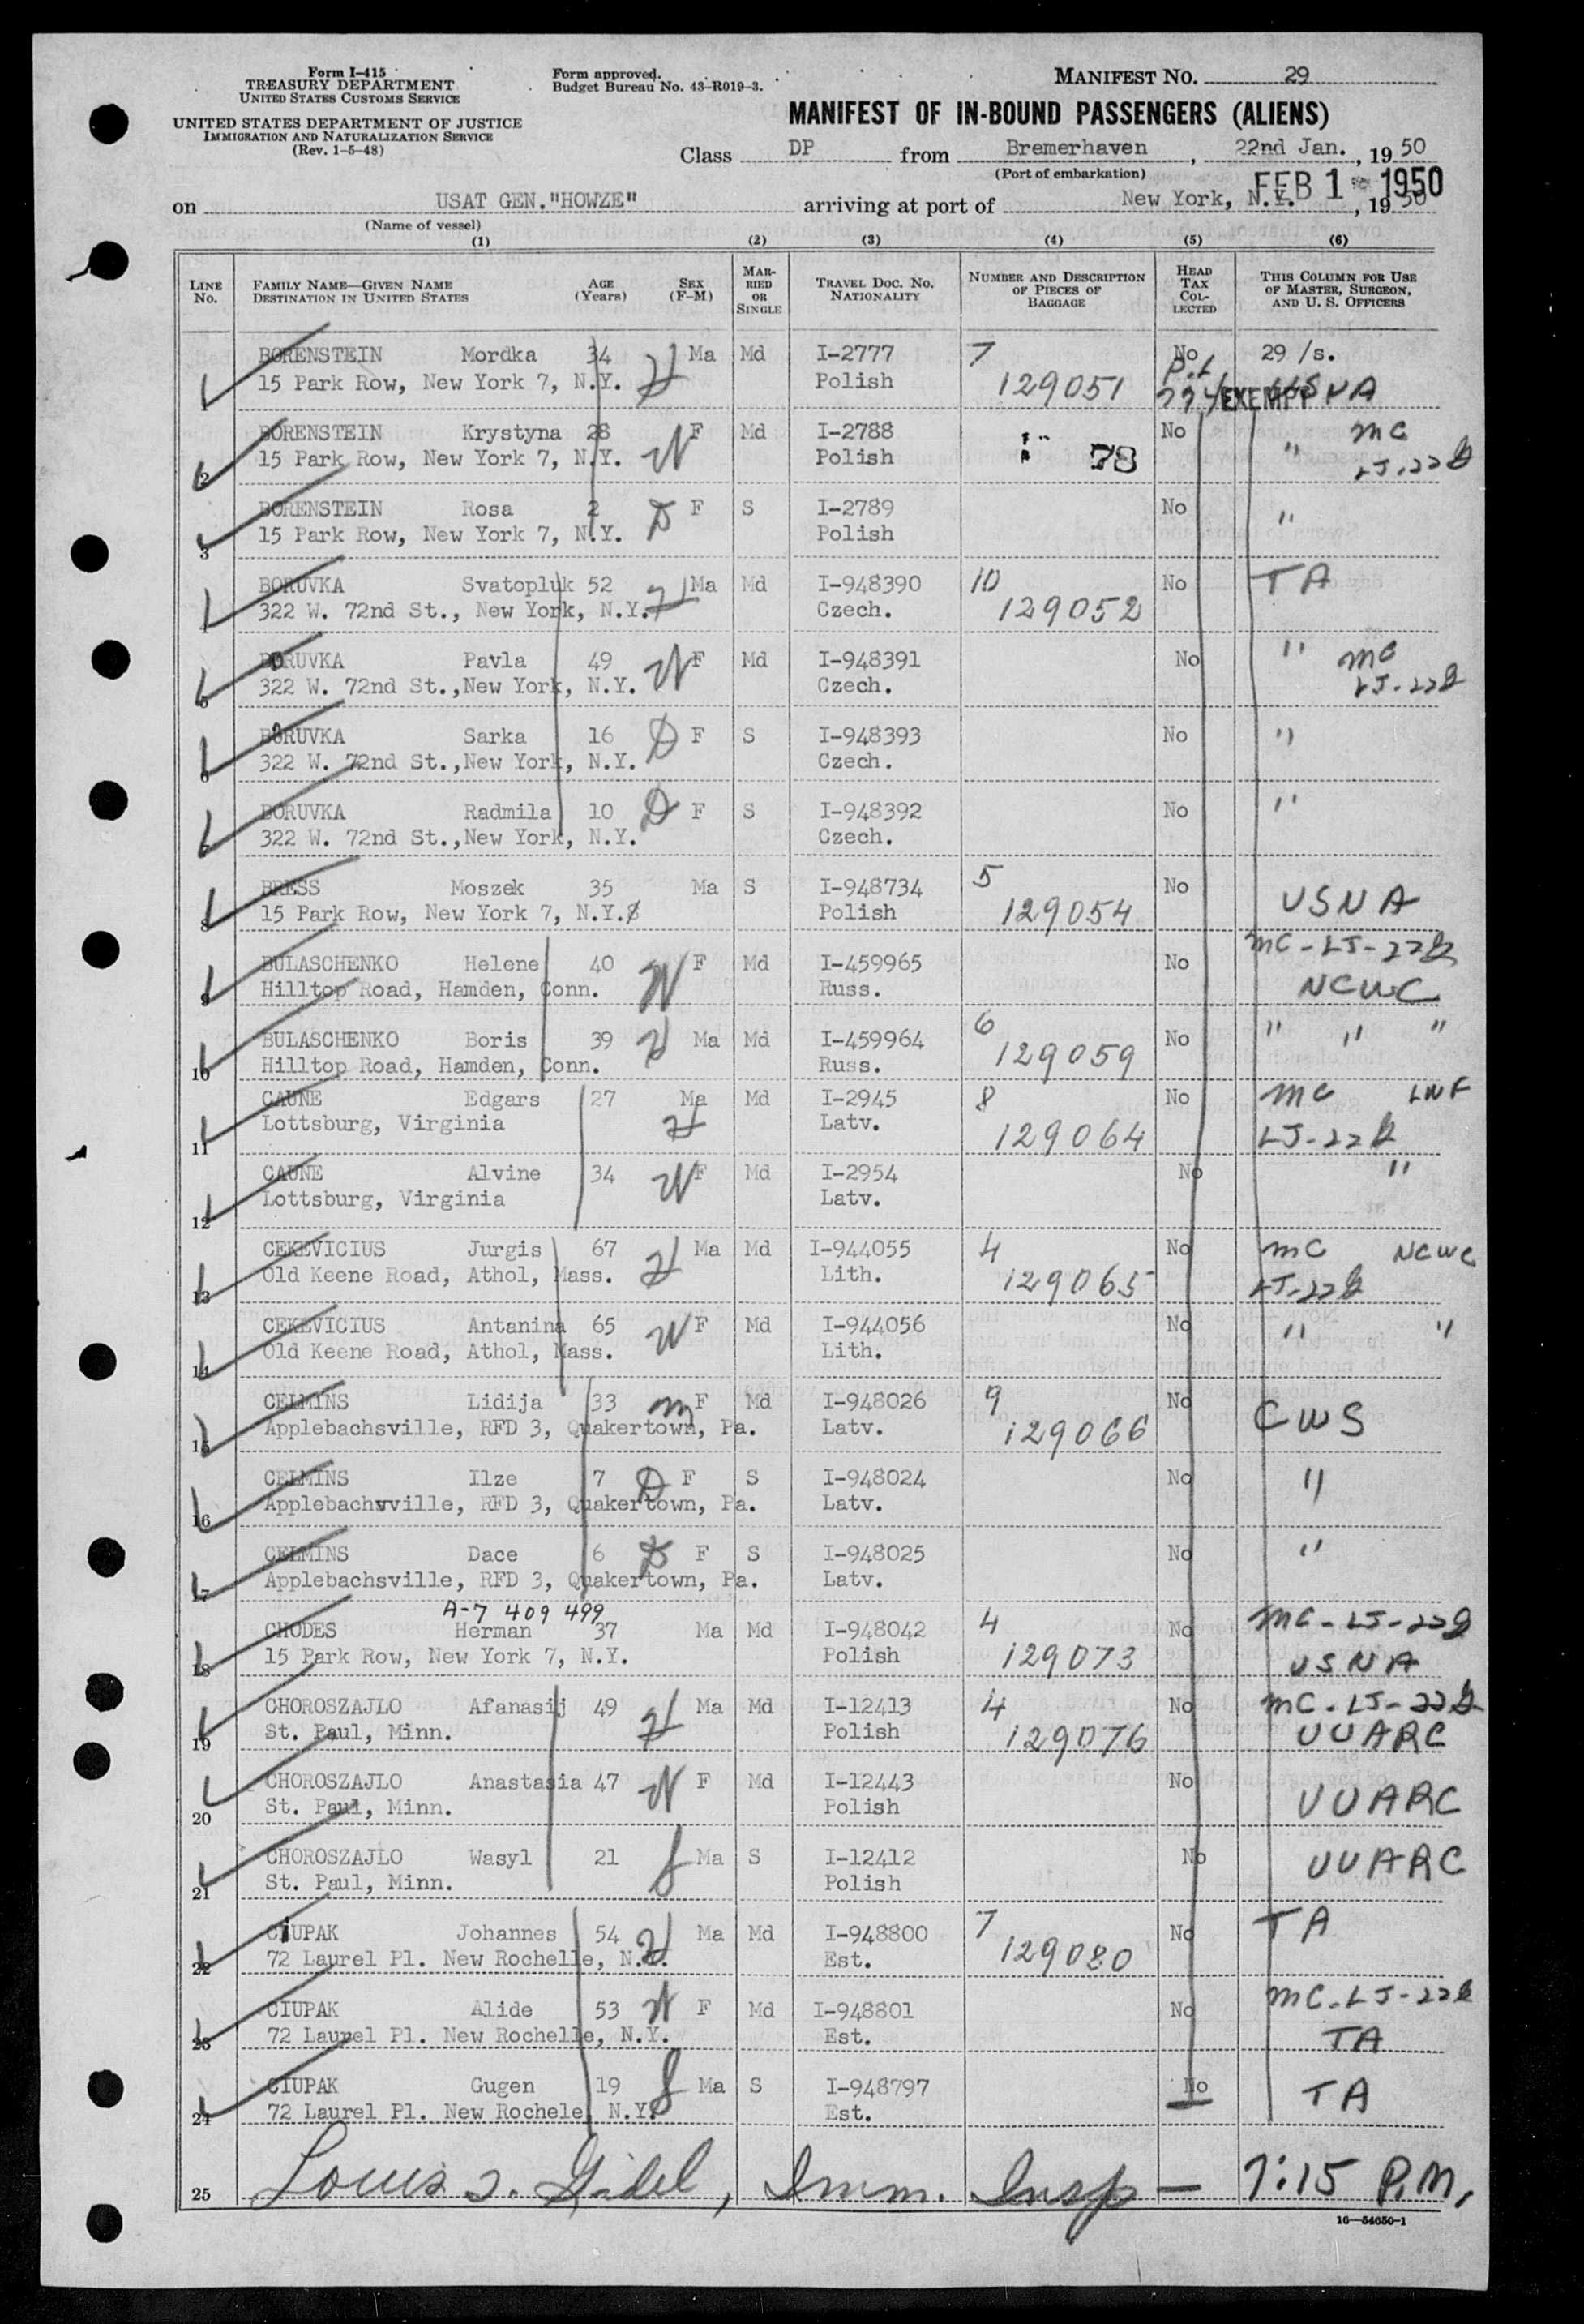 Form I-415
TREASURY DEPARTMENT
UNITED STATES CUSTOMS SERVICE
UNITED STATES DEPARTMENT OF JUSTICE
IMMIGRATION AND NATURALIZATION SERVICE
(Rev. 1-5-48)
Form approved.
Budget Bureau No. 43-R019-3.
MANIFEST NO. 29
MANIFEST OF IN-BOUND PASSENGERS (ALIENS)
Class DP from Bremerhaven, 22nd Jan., 1950
(Port of embarkation)
FEB 1 1950
on USAT GEN."HOWZE" arriving at port of New York, N.Y., 1950
(Name of vessel)
(1) (2) (3) (4) (5) (6)
LINE No. FAMILY NAME—GIVEN NAME DESTINATION IN UNITED STATES AGE (Years) SEX (F-M) MARRIED OR SINGLE TRAVEL DOC. NO. NATIONALITY NUMBER AND DESCRIPTION OF PIECES OF BAGGAGE HEAD TAX COLLECTED THIS COLUMN FOR USE OF MASTER, SURGEON, AND U. S. OFFICERS
BORENSTEIN Mordka 34 H Ma Md I-2777 7 No 29 /s.
15 Park Row, New York 7, N.Y. Polish 129051 EXEMPT USNA
BORENSTEIN Krystyna 28 W F Md I-2788 No " MC
2 15 Park Row, New York 7, N.Y. Polish 78 LJ-22
BORENSTEIN Rosa 2 D F S I-2789 No "
3 15 Park Row, New York 7, N.Y. Polish
BORUVKA Svatopluk 52 H Ma Md I-948390 10 No TA
322 W. 72nd St., New York, N.Y. Czech. 129052
BORUVKA Pavla 49 W F Md I-948391 No " MC
5 322 W. 72nd St.,New York, N.Y. Czech. LJ-22
BORUVKA Sarka 16 D F S I-948393 No "
6 322 W. 72nd St.,New York, N.Y. Czech.
BORUVKA Radmila 10 D F S I-948392 No "
7 322 W. 72nd St.,New York, N.Y. Czech.
BRESS Moszek 35 Ma S I-948734 5 No USNA
8 15 Park Row, New York 7, N.Y. Polish 129054
BULASCHENKO Helene 40 W F Md I-459965 No MC-LJ-22
9 Hilltop Road, Hamden, Conn. Russ. NCWC
BULASCHENKO Boris 39 H Ma Md I-459964 6 No " " "
10 Hilltop Road, Hamden, Conn. Russ. 129059
CAUNE Edgars 27 Ma Md I-2945 8 No MC LWF
11 Lottsburg, Virginia H Latv. 129064 LJ-22
CAUNE Alvine 34 W F Md I-2954 No "
12 Lottsburg, Virginia Latv.
CEKEVICIUS Jurgis 67 H Ma Md I-944055 4 No MC NCWC
13 Old Keene Road, Athol, Mass. Lith. 129065 LJ-22
CEKEVICIUS Antanina 65 W F Md I-944056 No " "
14 Old Keene Road, Athol, Mass. Lith.
CELMINS Lidija 33 m F Md I-948026 9 No CWS
15 Applebachsville, RFD 3, Quakertown, Pa. Latv. 129066
CELMINS Ilze 7 D F S I-948024 No "
16 Applebachsville, RFD 3, Quakertown, Pa. Latv.
CELMINS Dace 6 D F S I-948025 No "
17 Applebachsville, RFD 3, Quakertown, Pa. Latv.
A-7 409 499
CHODES Herman 37 Ma Md I-948042 4 No MC-LJ-22
18 15 Park Row, New York 7, N.Y. Polish 129073 USNA
CHOROSZAJLO Afanasij 49 H Ma Md I-12413 4 No MC-LJ-22
19 St. Paul, Minn. Polish 129076 UUARC
CHOROSZAJLO Anastasia 47 W F Md I-12443 No UUARC
20 St. Paul, Minn. Polish
CHOROSZAJLO Wasyl 21 S Ma S I-12412 No UUARC
21 St. Paul, Minn. Polish
CIUPAK Johannes 54 H Ma Md I-948800 7 No TA
22 72 Laurel Pl. New Rochelle, N.Y. Est. 129080
CIUPAK Alide 53 W F Md I-948801 No MC-LJ-22
23 72 Laurel Pl. New Rochelle, N.Y. Est. TA
CIUPAK Gugen 19 S Ma S I-948797 No TA
24 72 Laurel Pl. New Rochele N.Y. Est.
25 Louis J. Gidel, Imm. Insp — 7:15 P.M.
16—54650-1